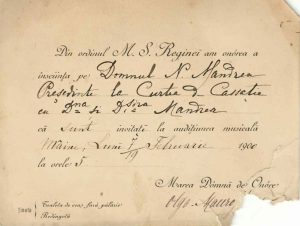 Din ordinul M. S. Reginei am onórea a
însciința pe Domnul N. Mandrea
Președinte la Curtea de Cassație
cu Dna și Dșóra Mandrea
că sunt invitați la audițiunea musicală
Luni 7/19 Februarie 1900
la orele 5
Marea Dómnă de Onóre
Olga Mauro
Ținuta
Toaleta de oraș, fără pălărie
Redingotă